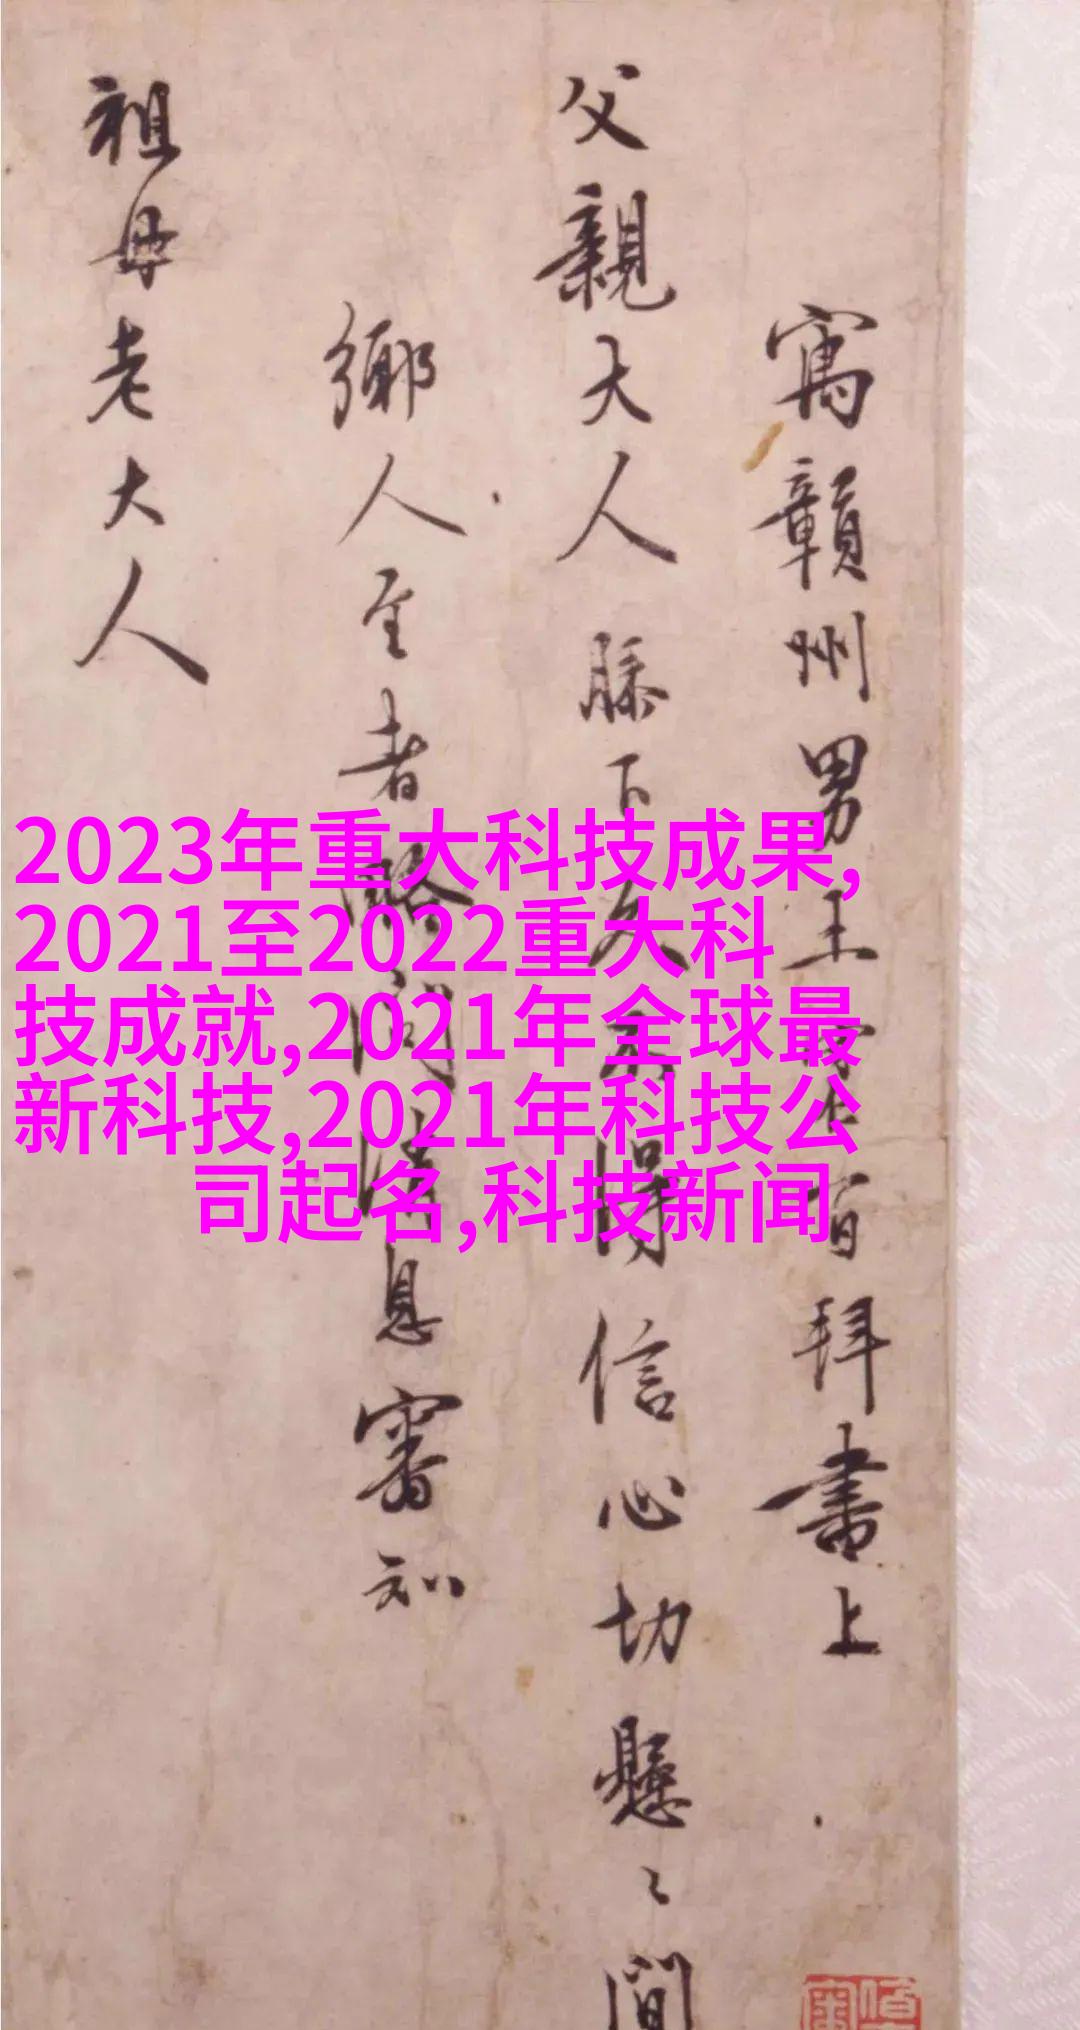 寓贛州男王守仁百拜書上
父親大人膝下久不得信心切懸〻間
鄉人至者略問消息審知
祖母老大人
2023年重大科技成果,
2021至2022重大科
技成就,2021年全球最
新科技,2021年科技公
司起名,科技新闻